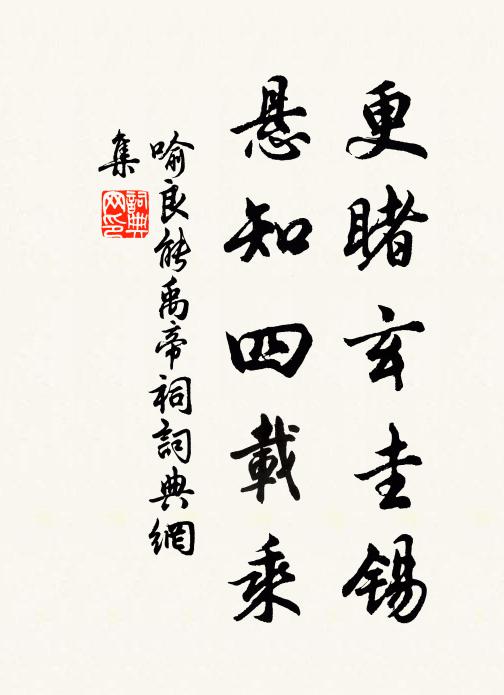 更睹玄圭锡
悬知四載乘
喻良能禹帝祠詞典網
集
詞典网印